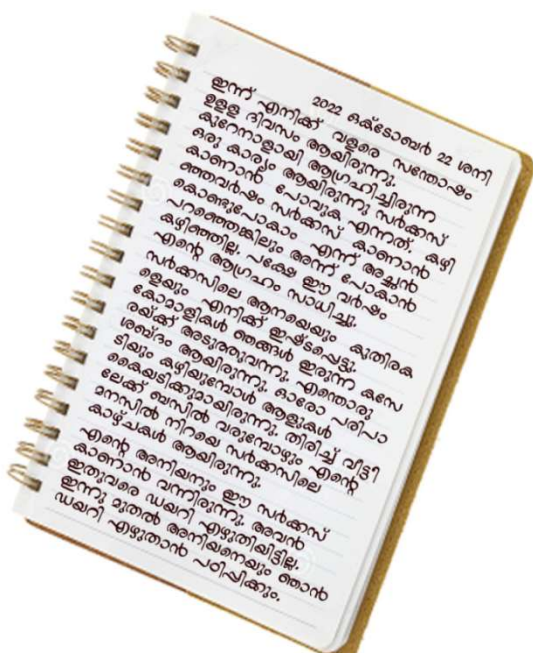 2022 ഒക്ടോബർ 22 ശനി
ഇന്ന് എനിക്ക് വളരെ സന്തോഷം
ഉള്ള ദിവസം ആയിരുന്നു.
കുറേനാളായി ആഗ്രഹിച്ചിരുന്ന
ഒരു കാര്യം ആയിരുന്നു സർക്കസ്
കാണാൻ പോവുക എന്നത്. കഴി
ഞ്ഞവർഷം സർക്കസ് കാണാൻ
കൊണ്ടുപോകാം എന്ന് അച്ഛൻ
പറഞ്ഞെങ്കിലും അന്ന് പോകാൻ
കഴിഞ്ഞില്ല. പക്ഷേ ഈ വർഷം
എന്റെ ആഗ്രഹം സാധിച്ചു.
സർക്കസിലെ ആനയെയും കുതിരക
ളെയും എനിക്ക് ഇഷ്ടപ്പെട്ടു.
കോമാളികൾ ഞങ്ങൾ ഇരുന്ന കസേ
രയ്ക്ക് അടുത്തുവന്നു. എന്തൊരു
ശബ്ദം ആയിരുന്നു. ഓരോ പരിപാ
ടിയും കഴിയുമ്പോൾ ആളുകൾ
കൈയടിക്കുമായിരുന്നു. തിരിച്ച് വീട്ടി
ലേക്ക് ബസിൽ വരുമ്പോഴും എന്റെ
മനസിൽ നിറയെ സർക്കസിലെ
കാഴ്ചകൾ ആയിരുന്നു.
എന്റെ അനിയനും ഈ സർക്കസ്
കാണാൻ വന്നിരുന്നു. അവൻ
ഇതുവരെ ഡയറി എഴുതിയിട്ടില്ല.
ഇന്നു മുതൽ അനിയനെയും ഞാൻ
ഡയറി എഴുതാൻ പഠിപ്പിക്കും.